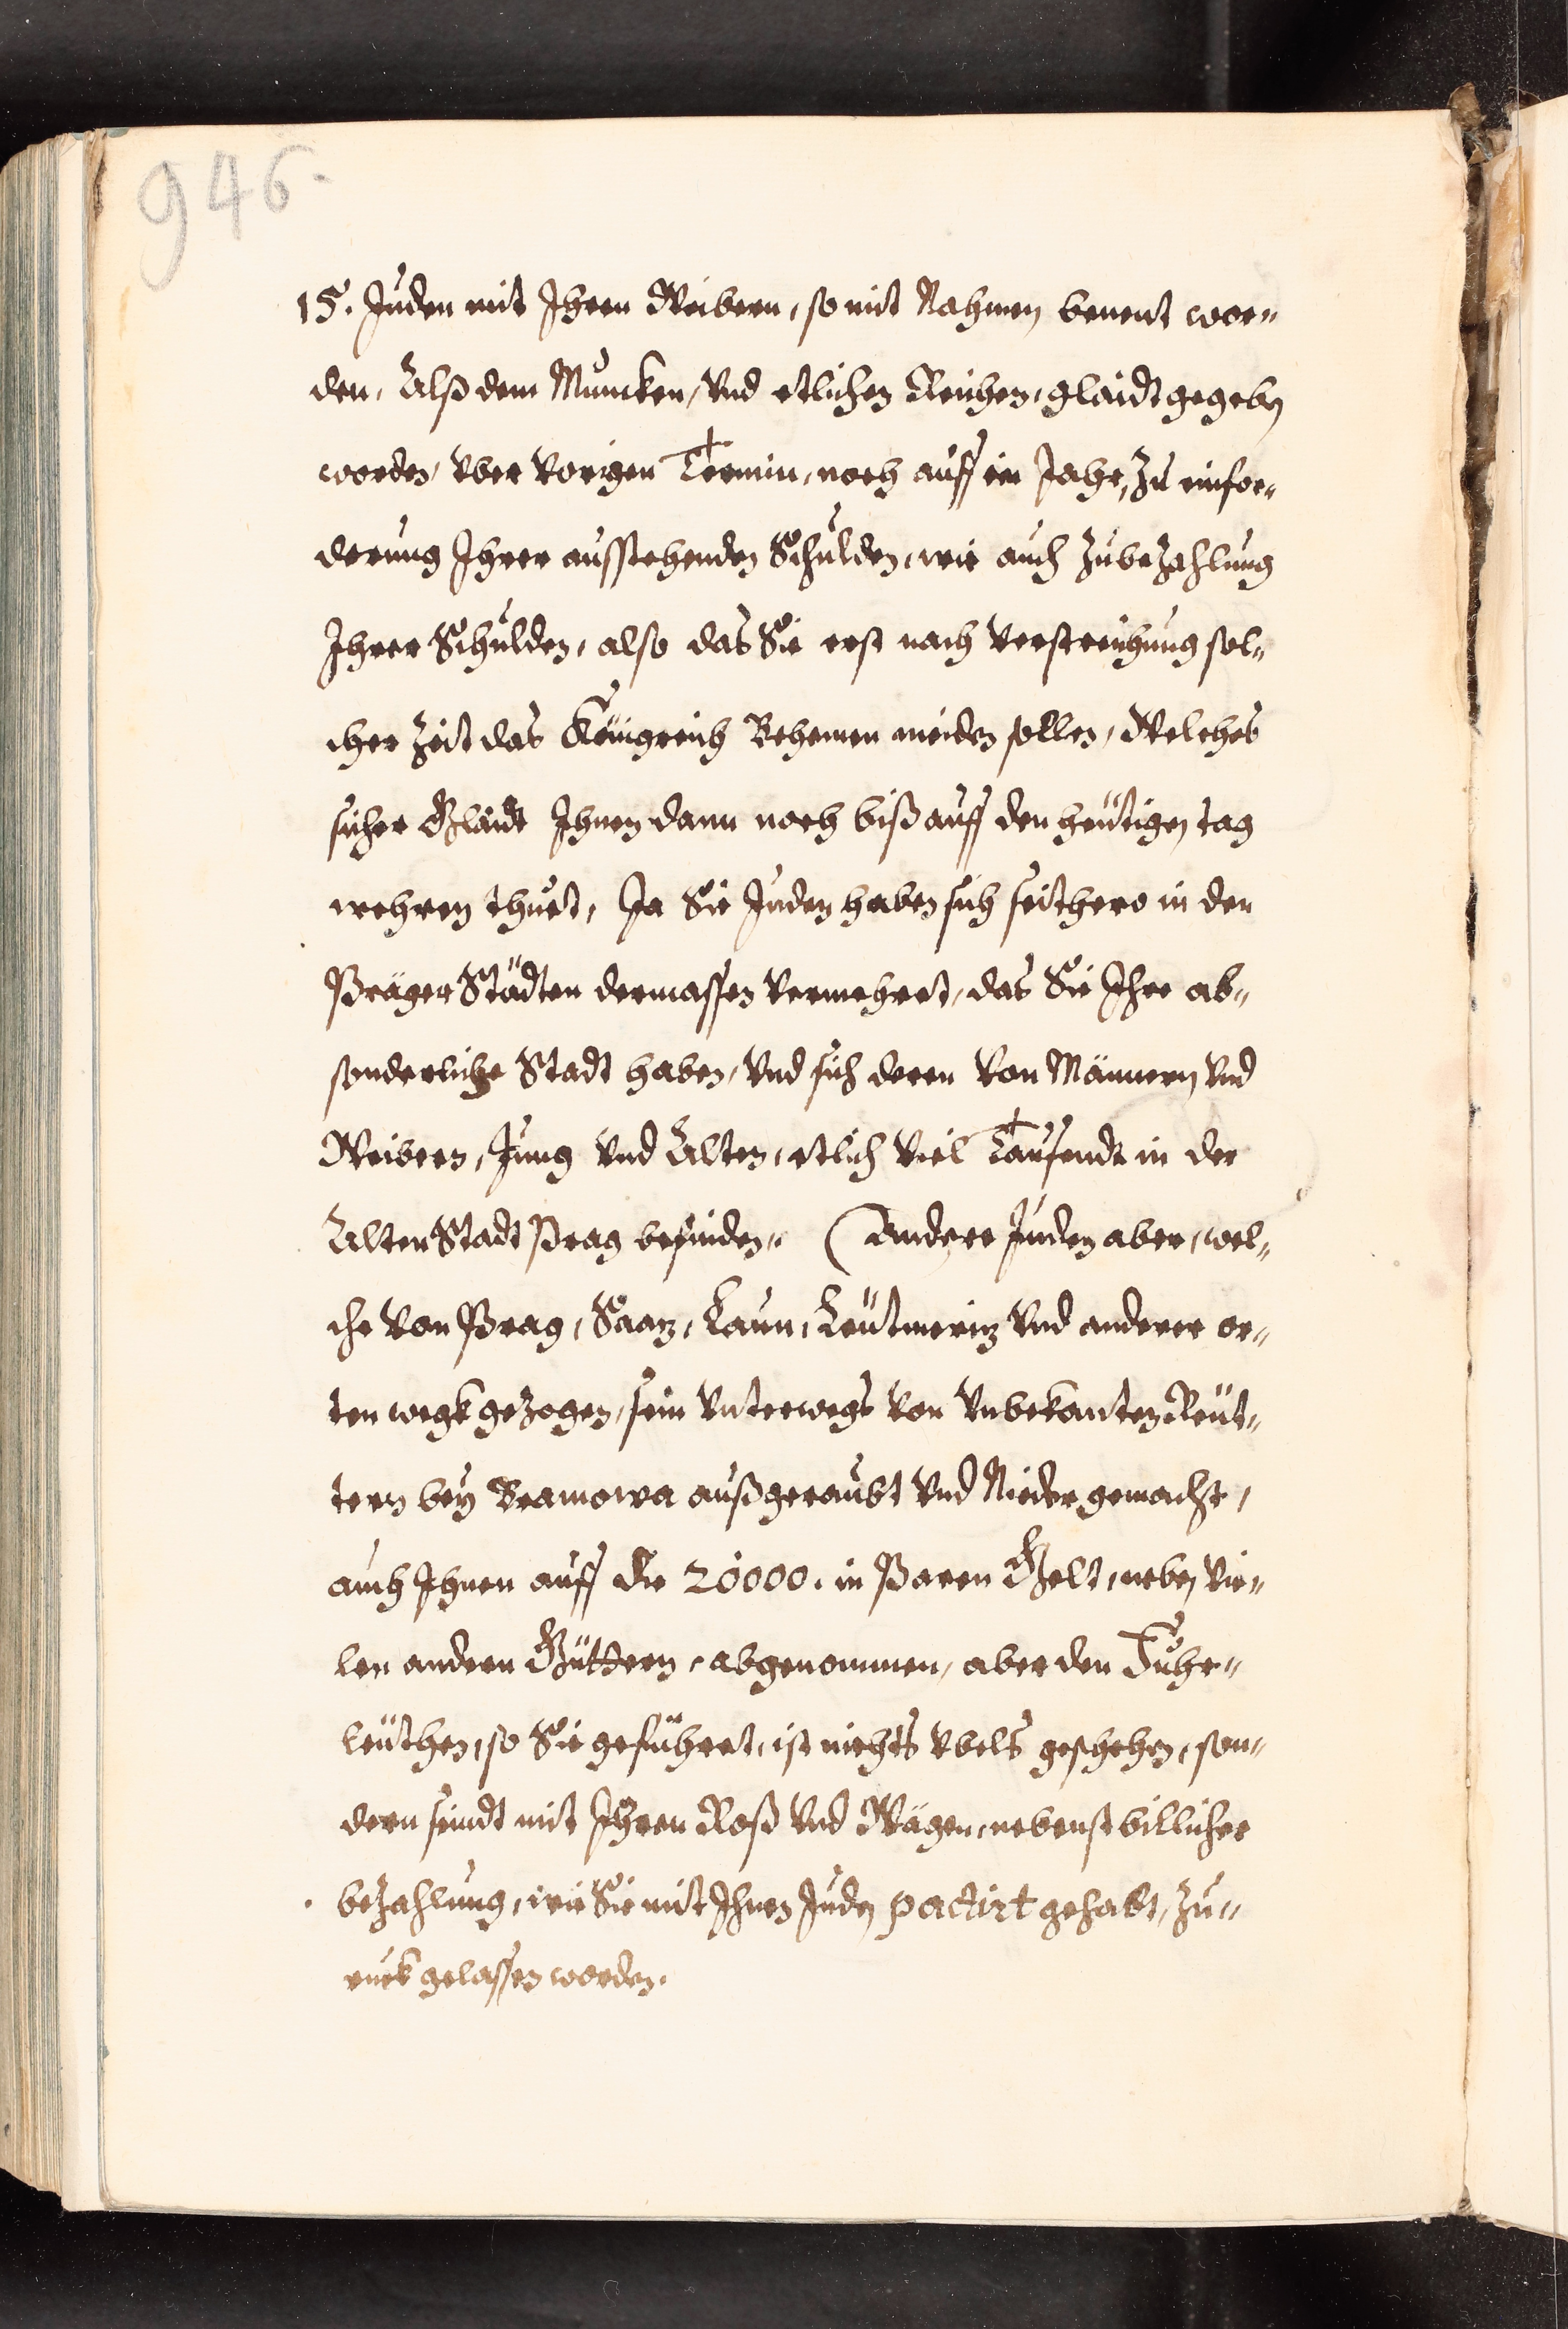 946.
15. Juden mit Ihren Weibern, so mit Nahmen benent wor„
den, Alß dem Muncken, Vnd etlichen Reichen, glaidt gegeben
worden, Vber Vorigen Termin, noch auff ein Jahr, zu einfor„
derung Ihrer ausstehenden Schulden, wie auch zubezahlung
Ihrer Schulden, also das Sie erst nach Verstreichung sol„
cher Zeit das Königreich Behemen meiden sollen, Welches
sicher Glaidt Ihnen dann noch biß auff den heütigen tag
wehren thuet, Ja Sie Juden haben sich seithero in den
Präger Städten dermassen Vermehret, das Sie Ihre ab„
sonderliche Stadt haben, Vnd sich deren Von Männern Vnd
Weibern, Jung Vnd Alten, etlich Viel Tausendt in der
Alten Stadt Prag befinden. (Andere Juden aber, wel„
che Von Prag, Saaz, Laun, Leütmeriz Vnd anderer or„
ten wegk gezogen, sein Vnterwegs Von Vnbekanten Reüt„
tern bey Bramowa außgeraubt Vnd Nieder gemacht,
auch Ihnen auff die 20000. in Paren Gelt, neben Vie„
len andern Güttern, abgenommen, aber den Fuhr„
leüthen, so Sie geführet, ist nichts Vbels geschehen, son„
dern seindt mit Ihren Roß Vnd Wägen, nebenst billicher
bezahlung, wie Sie mit Ihnen Juden pactirt gehabt, zu„
ruck gelassen worden.